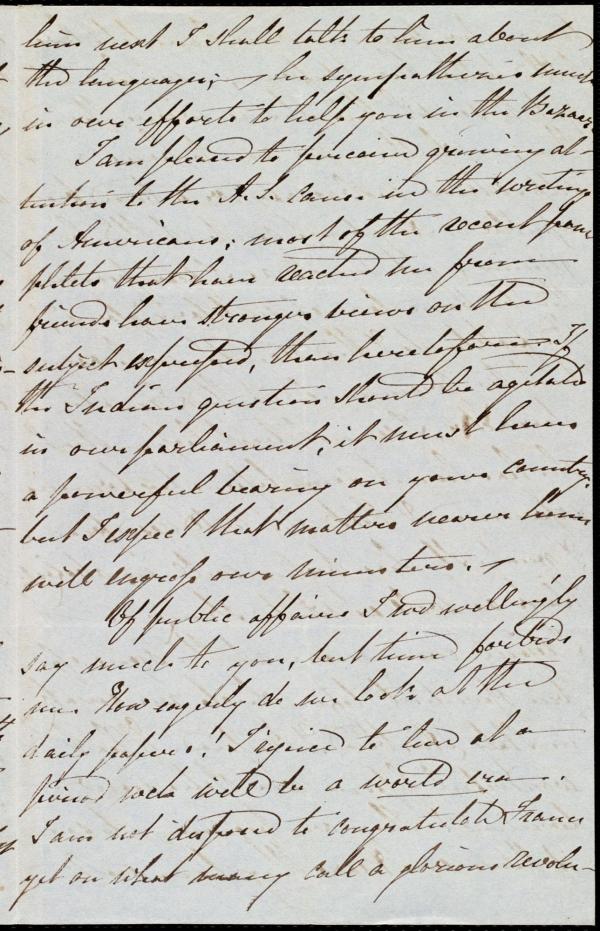 him next I shall talk to him about
the languages; — he sympathizes much
in our efforts to help you in the Bazaar.
I am pleased to perceive growing at-
tention to the A.S. cause in the writings
of Americans; most of the recent pam
phlets that have reached me from
friends have stronger views on the
subject expressed, than heretofore. If
the Indian question should be agitated
in our parliament, it must have
a powerful bearing on your country,
but I expect that matters nearer home
will engross our ministers. —
Of public affairs I wd willingly
say much to you, but time forbids
me. How eagerly do we look at the
daily papers! I rejoice to live at a
period wch will be a world era.
I am not disposed to congratulate France
yet on what many call a glorious revolu-